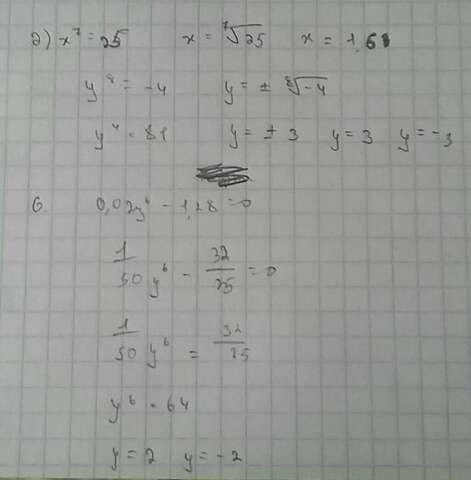 2) x⁷ = 25 x = ⁷√25 x = 1,61
y⁸ = -4 y = ± ⁸√-4
y⁴ = 81 y = ± 3 y = 3 y = -3
6. 0,02y⁶ - 1,28 = 0
1/50 y⁶ - 32/25 = 0
1/50 y⁶ = 32/25
y⁶ = 64
y = 2 y = -2